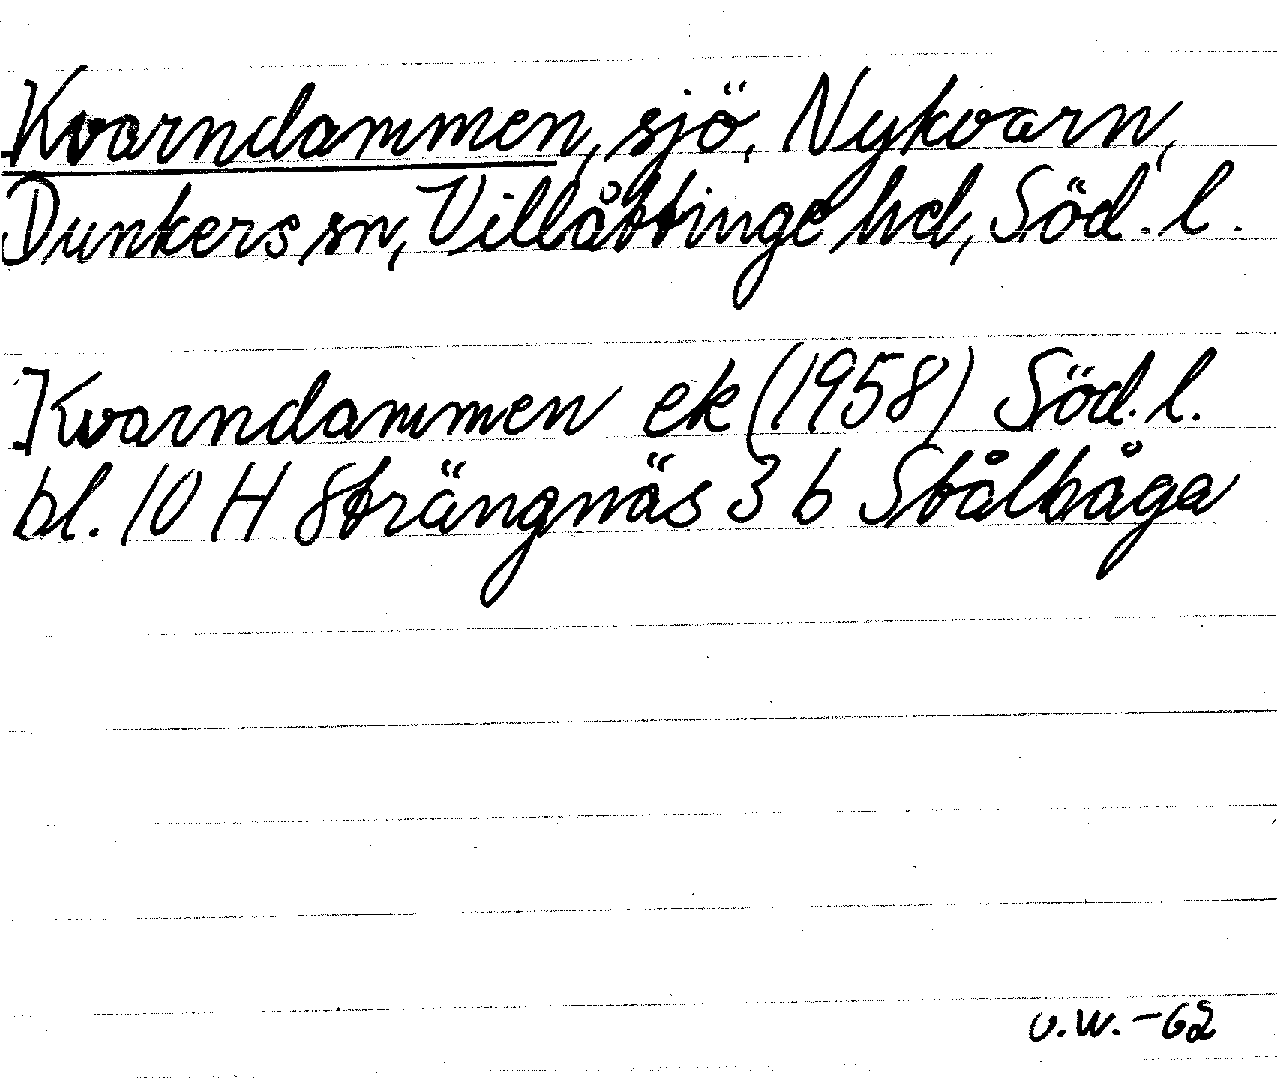 Kvarndammen, sjö, Nykvarn,
Dunkers sn, Villåttinge hd, Söd. l.
Kvarndammen ek (1958) Söd. l.
bl. 10 H Strängnäs 3 b Stålbåga
v.W.-62